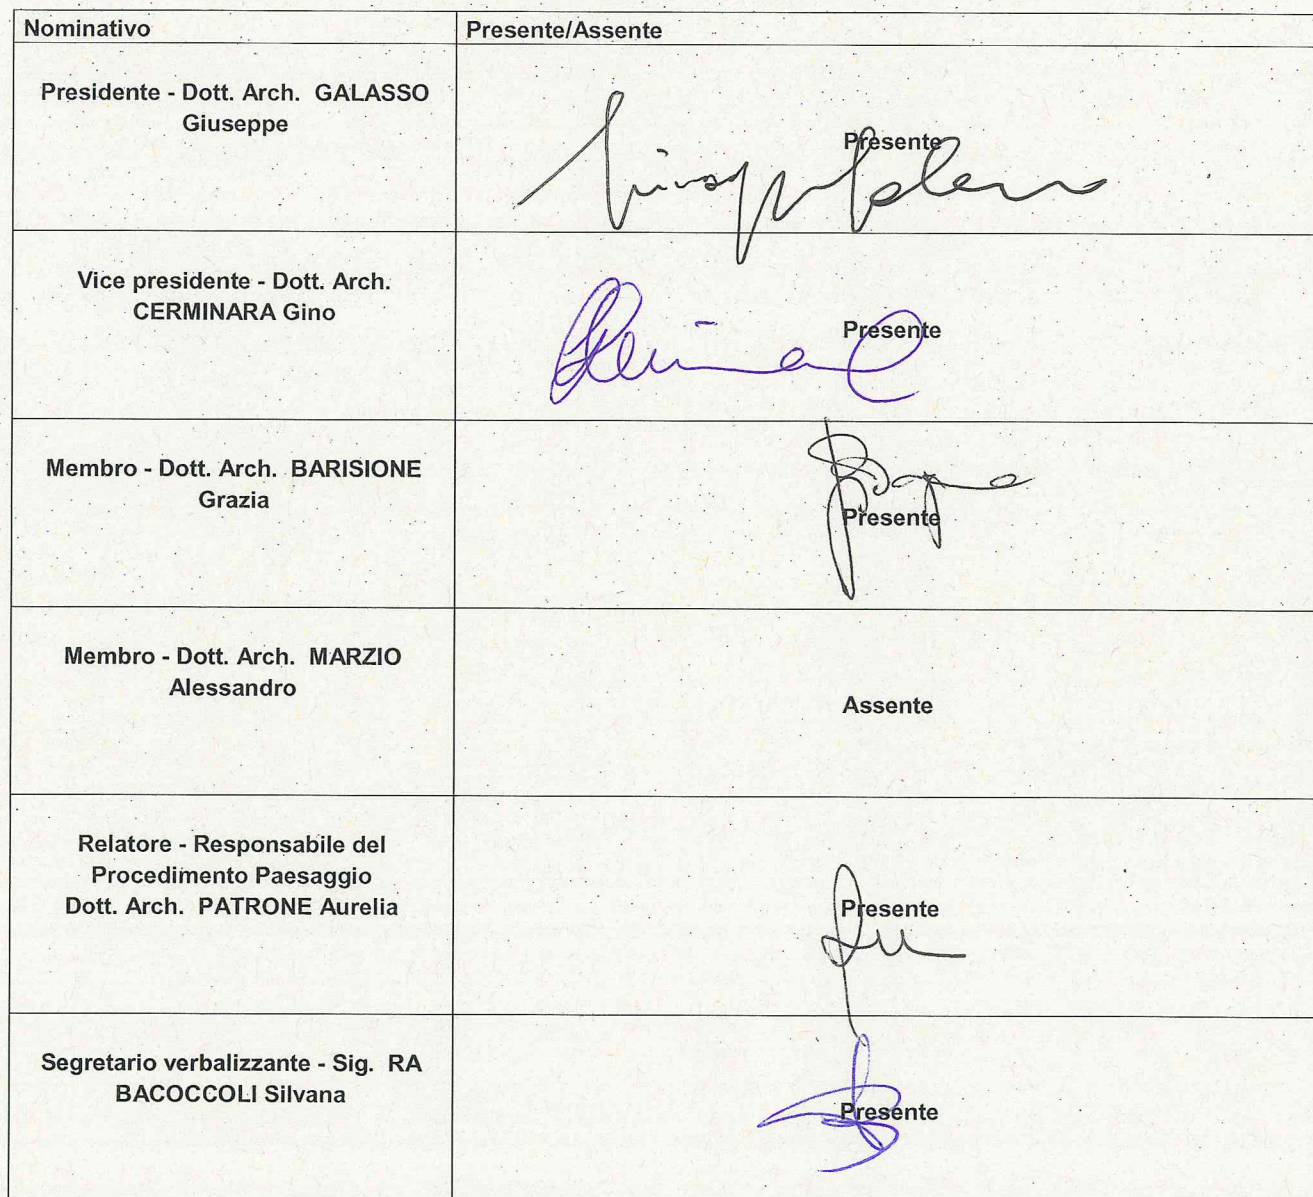 Nominativo
Presente/Assente
Presidente - Dott. Arch. GALASSO
Giuseppe
Presente
Vice presidente - Dott. Arch.
CERMINARA Gino
Presente
Membro - Dott. Arch. BARISIONE
Grazia
Presente
Membro - Dott. Arch. MARZIO
Alessandro
Assente
Relatore - Responsabile del
Procedimento Paesaggio
Dott. Arch. PATRONE Aurelia
Presente
Segretario verbalizzante - Sig. RA
BACOCCOLI Silvana
Presente